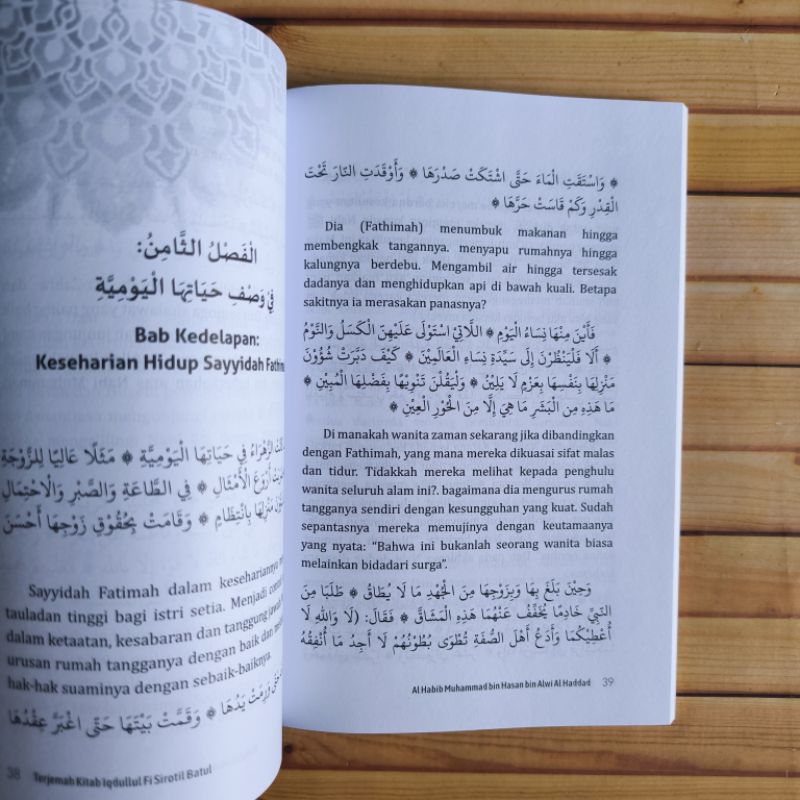 الْفَصْلُ الثَّامِنُ:
فِيْ وَصْفِ حَيَاتِهَا الْيَوْمِيَّةِ
Bab Kedelapan:
Keseharian Hidup Sayyidah Fathim
الزَّهْرَاءُ فِيْ حَيَاتِهَا الْيَوْمِيَّةِ ۞ مَثَلًا عَالِيًا لِلزَّوْجَةِ
أَرْوَعَ الْأَمْثَالِ ۞ فِي الطَّاعَةِ وَالصَّبْرِ وَالْاِحْتِمَالِ
مَنْزِلِهَا بِانْتِظَامٍ ۞ وَقَامَتْ بِحُقُوْقِ زَوْجِهَا أَحْسَنَ
Sayyidah Fatimah dalam kesehariannya
tauladan tinggi bagi istri setia. Menjadi
dalam ketaatan, kesabaran dan tanggung
urusan rumah tangganya dengan baik dan
hak-hak suaminya dengan sebaik-baiknya.
وَرِمَتْ يَدُهَا ۞ وَقَمَّتْ بَيْتَهَا حَتَّى اغْبَرَّ عِقْدُهَا
38 Terjemah Kitab Iqdullul Fi Sirotil Batul
۞ وَاسْتَقَتِ الْمَاءَ حَتَّى اشْتَكَتْ صَدْرَهَا ۞ وَأَوْقَدَتِ النَّارَ تَحْتَ
الْقِدْرِ وَكَمْ قَاسَتْ حَرَّهَا ۞
Dia (Fathimah) menumbuk makanan hingga
membengkak tangannya. menyapu rumahnya hingga
kalungnya berdebu. Mengambil air hingga tersesak
dadanya dan menghidupkan api di bawah kuali. Betapa
sakitnya ia merasakan panasnya?
فَأَيْنَ مِنْهَا نِسَاءُ الْيَوْمِ ۞ اللَّاتِيْ اسْتَوْلَى عَلَيْهِنَّ الْكَسَلُ وَالنَّوْمُ
۞ أَلَا فَلْيَنْظُرْنَ إِلَى سَيِّدَةِ نِسَاءِ الْعَالَمِيْنَ ۞ كَيْفَ دَبَّرَتْ شُؤُوْنَ
مَنْزِلِهَا بِنَفْسِهَا بِعَزْمٍ لَا يَلِيْنُ ۞ وَلْيَقُلْنَ تَنْوِيْهًا بِفَضْلِهَا الْمُبِيْنِ ۞
مَا هَذِهِ مِنَ الْبَشَرِ مَا هِيَ إِلَّا مِنَ الْحُوْرِ الْعِيْنِ ۞
Di manakah wanita zaman sekarang jika dibandingkan
dengan Fathimah, yang mana mereka dikuasai sifat malas
dan tidur. Tidakkah mereka melihat kepada penghulu
wanita seluruh alam ini?. bagaimana dia mengurus rumah
tangganya sendiri dengan kesungguhan yang kuat. Sudah
sepantasnya mereka memujinya dengan keutamaanya
yang nyata: “Bahwa ini bukanlah seorang wanita biasa
melainkan bidadari surga”.
وَحِيْنَ بَلَغَ بِهَا وَبِزَوْجِهَا مِنَ الْجُهْدِ مَا لَا يُطَاقُ ۞ طَلَبَا مِنَ
النَّبِيِّ خَادِمًا يُخَفِّفُ عَنْهُمَا هَذِهِ الْمَشَاقَّ ۞ فَقَالَ: (لَا وَاللهِ لَا
أُعْطِيْكُمَا وَأَدَعُ أَهْلَ الصُّفَّةِ تُطْوَى بُطُوْنُهُمْ لَا أَجِدُ مَا أُنْفِقُهُ
Al Habib Muhammad bin Hasan bin Alwi Al Haddad 39